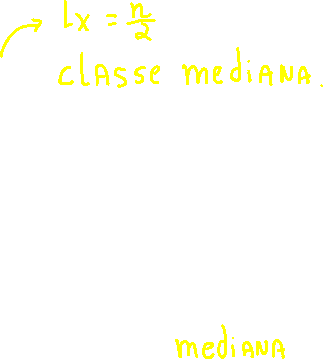 Lx = n/2
classe mediana.
mediana